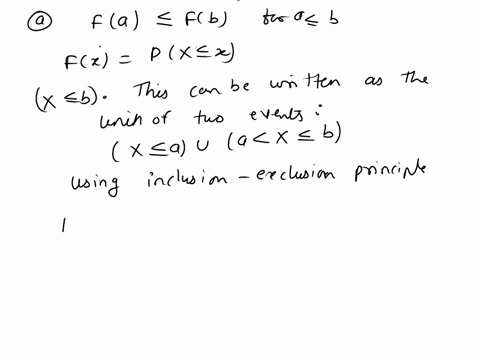 ⓐ F(a) ≤ F(b) for a ≤ b
F(x) = P(X ≤ x)
(X ≤ b). This can be written as the
unin of two events:
(X ≤ a) ∪ (a < X ≤ b)
using inclusion - exclusion principle